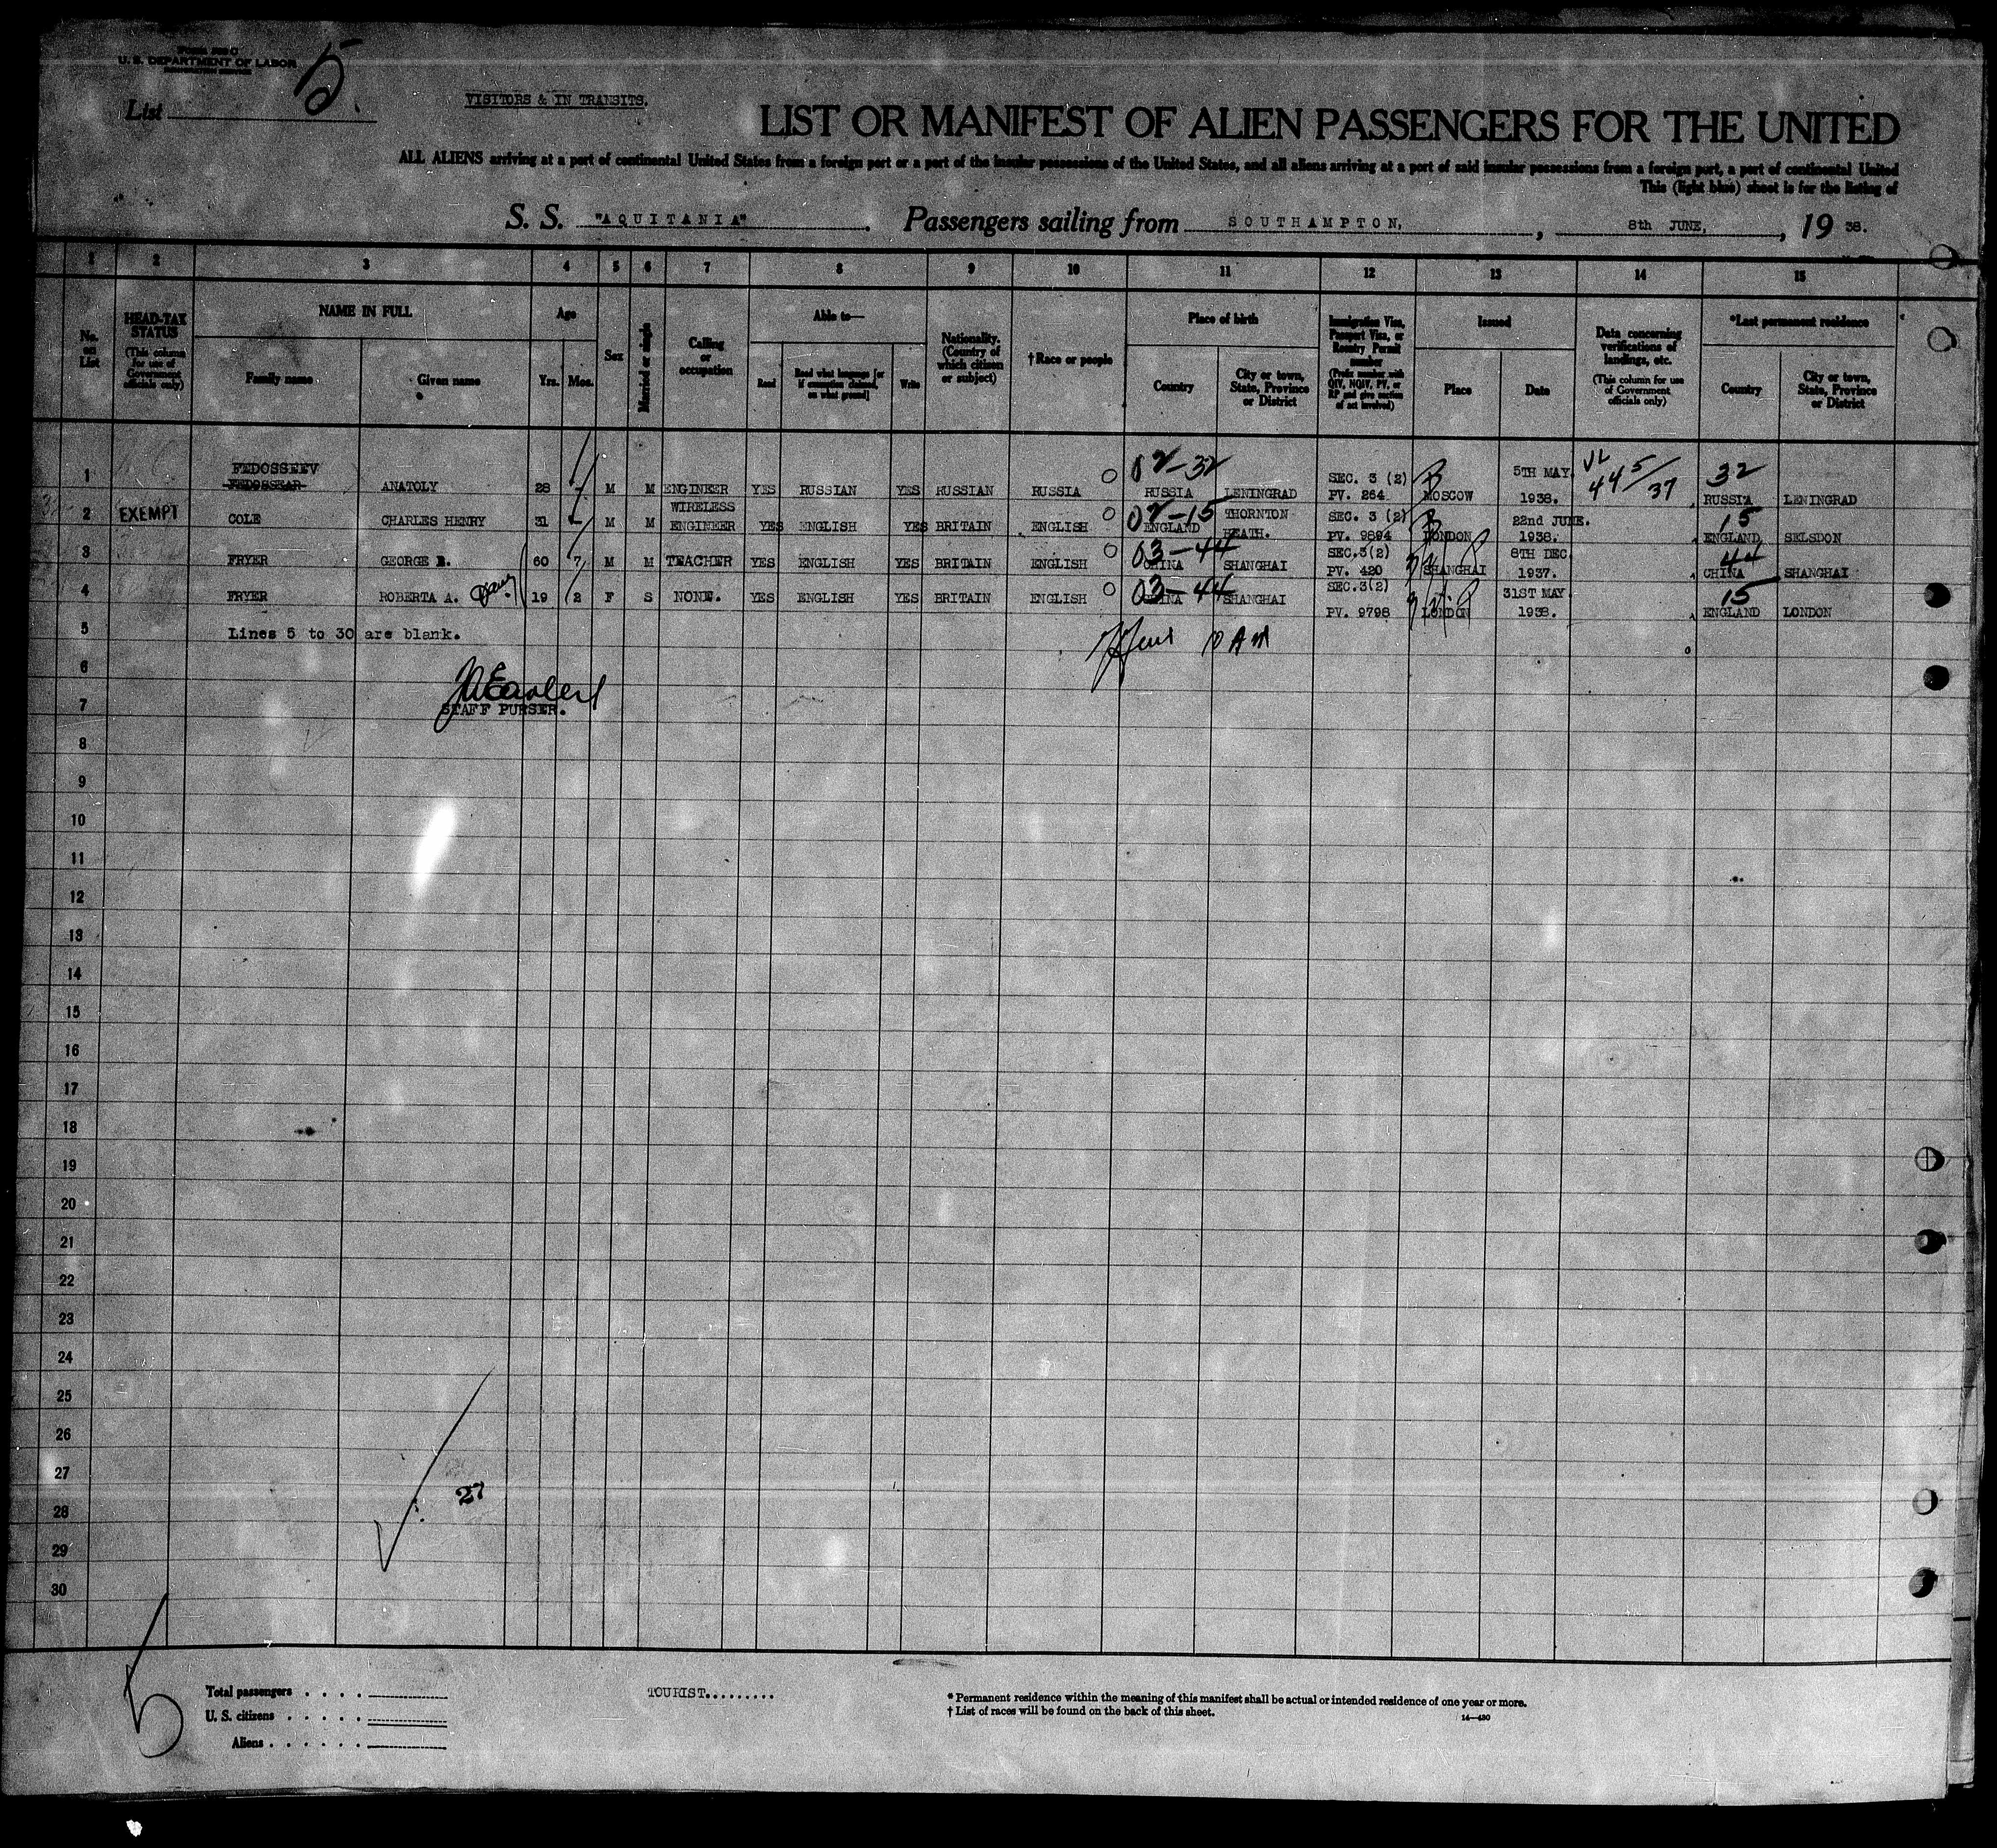 Form 500 C
U. S. DEPARTMENT OF LABOR
IMMIGRATION SERVICE
List 5.
VISITORS & IN TRANSITS.
LIST OR MANIFEST OF ALIEN PASSENGERS FOR THE UNITED
ALL ALIENS arriving at a port of continental United States from a foreign port or a port of the insular possessions of the United States, and all aliens arriving at a port of said insular possessions from a foreign port, a port of continental United
This (light blue) sheet is for the listing of
S. S. "AQUITANIA". Passengers sailing from SOUTHAMPTON, , 8th JUNE, , 19 38.
1 2 3 4 5 6 7 8 9 10 11 12 13 14 15
No. on List
HEAD-TAX STATUS (This column for use of Government officials only)
NAME IN FULL
Family name
Given name
Age
Yrs. Mos.
Sex
Married or single
Calling or occupation
Able to—
Read
Read what language [or if exemption claimed, on what ground]
Write
Nationality. (Country of which citizen or subject)
†Race or people
Place of birth
Country
City or town, State, Province or District
Immigration Visa, Passport Visa, or Reentry Permit number (Prefix number with QIV, NQIV, PV, or RP and give section of act involved)
Issued
Place
Date
Data concerning verifications of landings, etc. (This column for use of Government officials only)
*Last permanent residence
Country
City or town, State, Province or District
FEDOSSEEV
1 FEDOSSEAR ANATOLY 28 M M ENGINEER YES RUSSIAN YES RUSSIAN RUSSIA 02-32 RUSSIA LENINGRAD SEC. 3 (2) PV. 264 MOSCOW 5TH MAY. 1938. VL 44 5/37 32 RUSSIA LENINGRAD
2 EXEMPT COLE CHARLES HENRY 31 M M WIRELESS ENGINEER YES ENGLISH YES BRITAIN ENGLISH 02-15 ENGLAND THORNTON HEATH. SEC. 3 (2) PV. 9894 LONDON 22nd JUNE. 1938. 15 ENGLAND SELSDON
3 FRYER GEORGE B. 60 7 M M TEACHER YES ENGLISH YES BRITAIN ENGLISH 03-44 CHINA SHANGHAI SEC.3(2) PV. 420 SHANGHAI 8TH DEC. 1937. 44 CHINA SHANGHAI
4 FRYER ROBERTA A. 19 2 F S NONE. YES ENGLISH YES BRITAIN ENGLISH 03-44 CHINA SHANGHAI SEC.3(2) PV. 9798 LONDON 31ST MAY. 1938. 15 ENGLAND LONDON
5 Lines 5 to 30 are blank.
6
7 STAFF PURSER.
8
9
10
11
12
13
14
15
16
17
18
19
20
21
22
23
24
25
26
27
27
28
29
30
Total passengers . . . .
U. S. citizens . . . . .
Aliens . . . . . .
TOURIST.........
* Permanent residence within the meaning of this manifest shall be actual or intended residence of one year or more.
† List of races will be found on the back of this sheet.
14—430